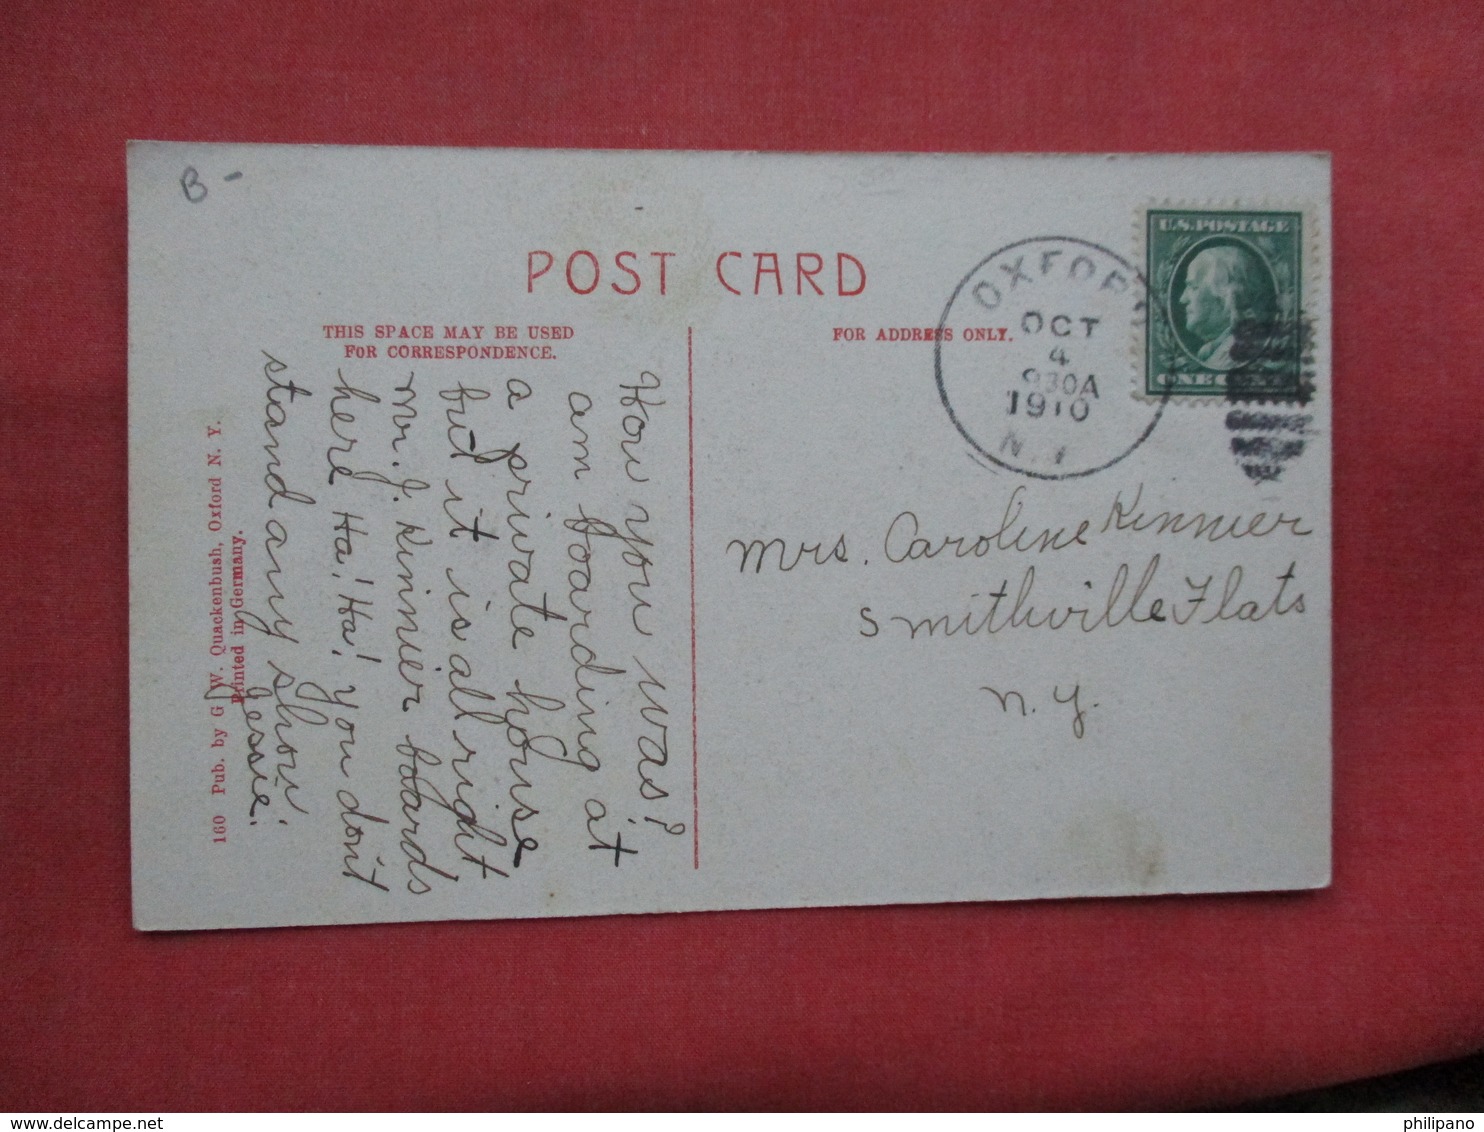 B-
POST CARD
THIS SPACE MAY BE USED
FOR CORRESPONDENCE.
FOR ADDRESS ONLY.
U.S. POSTAGE
ONE CENT
OXFORD
OCT
4
930A
1910
N.Y.
How you was?
am boarding at
a private house
but it is all right
Mr. J. Kinnier boards
here Ha! Ha! You don't
stand any show.
Jessie.
Mrs. Caroline Kinnier
Smithville Flats
N.Y.
160 Pub. by G. W. Quackenbush, Oxford N. Y.
Printed in Germany.
philipano